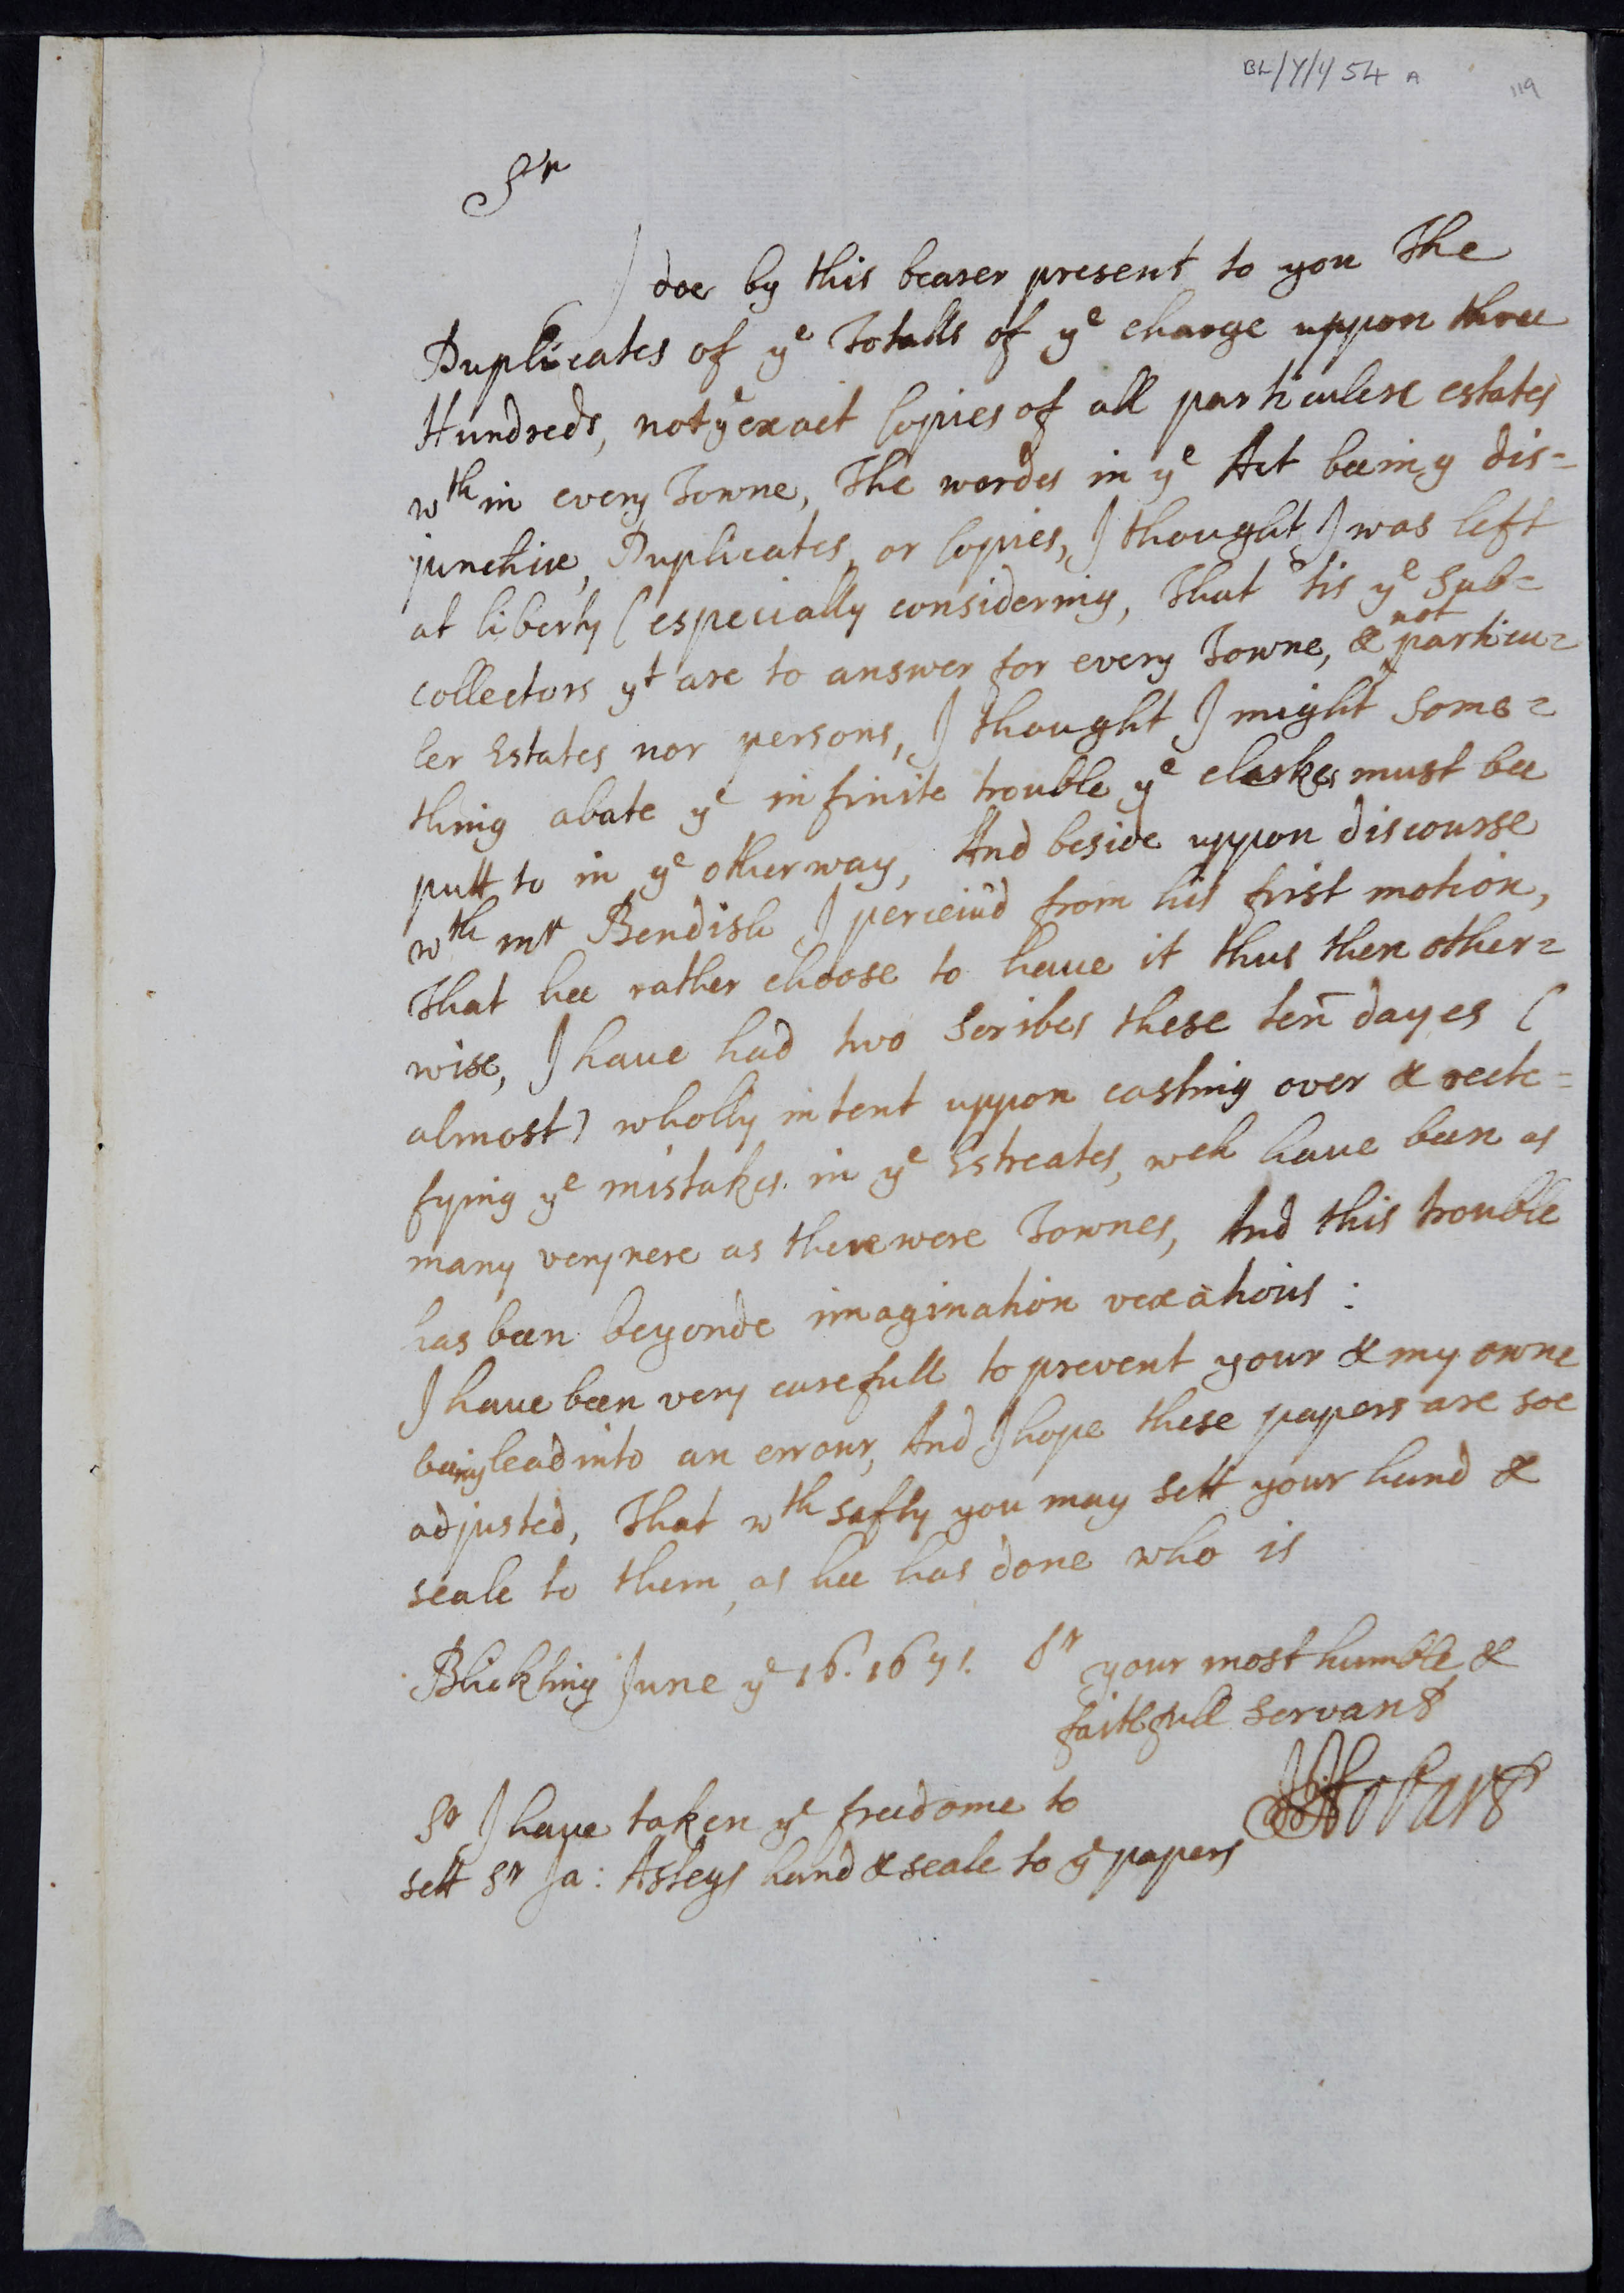 BL/Y/1/54 A
119
Sr
I doe by this bearer present to you The
Duplicates of ye Totalls of ye charge uppon three
Hundreds, not ye exact Copies of all particulere estates
wth in every Towne, The wordes in ye Act beeing dis=
junctive, Duplicates, or Copies, I thought I was left
at liberty (especially considering, That tis ye Sub=
collectors yt are to answer for every Towne, & not particu=
ler Estates nor persons, I thought I might some=
thing abate ye infinite trouble ye clarkes must bee
putt to in ye other way, And beside uppon discourse
wth mr Bendish I perceiu'd from his first motion,
That hee rather choose to haue it thus then other=
wise, I haue had two Scribes these ten dayes (
almost) wholly intent uppon casting over & recte=
fying ye mistakes in ye Estreates, wch haue been as
many very nere as there were Townes, And this trouble
has been beyonde imagination vexatious:
I haue been very carefull to prevent your & my owne
beeing lead into an errour, And I hope these papers are soe
adjusted, That wth safty you may sett your hand &
seale to them, as hee has done who is
Blickling June ye 16. 1671. Sr your most humble &
faithfull Servant
JHobart
Sr I haue taken ye freedome to
sett Sr Ja: Asteys hand & seale to ye papers